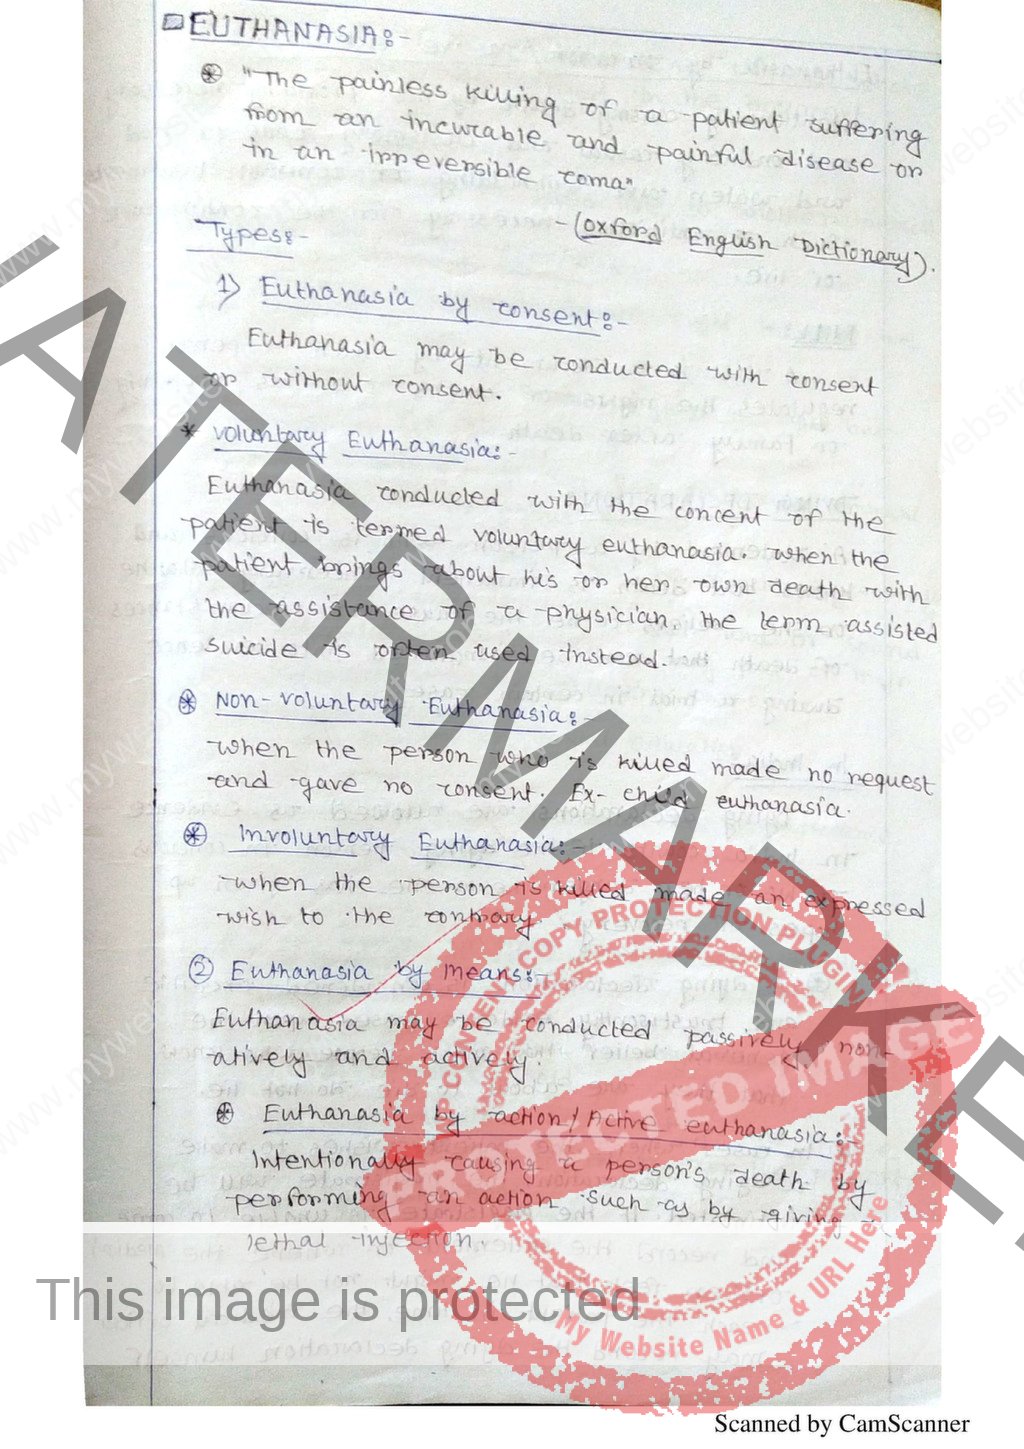 EUTHANASIA:-
"The painless killing of a patient suffering
from an incurable and painful disease or
in an irreversible coma"
- (Oxford English Dictionary).
Types:-
1) Euthanasia by consent:-
Euthanasia may be conducted with consent
or without consent.
* Voluntary Euthanasia:-
Euthanasia conducted with the concent of the
patient is termed voluntary euthanasia. When the
patient brings about his or her own death with
the assistance of a physician, the term assisted
suicide is often used instead.
* Non-voluntary Euthanasia:-
When the person who is killed made no request
and gave no consent. Ex- child euthanasia.
* Involuntary Euthanasia:-
When the person is killed made an expressed
wish to the contrary.
2 Euthanasia by means:-
Euthanasia may be conducted passively, non-
atively and actively.
* Euthanasia by action/Active euthanasia:-
Intentionally causing a person's death by
performing an action such as by giving
lethal injection.
WATERMARKED
WP CONTENT COPY PROTECTION PLUGIN
PROTECTED IMAGE
My Website Name & URL Here
This image is protected
Scanned by CamScanner